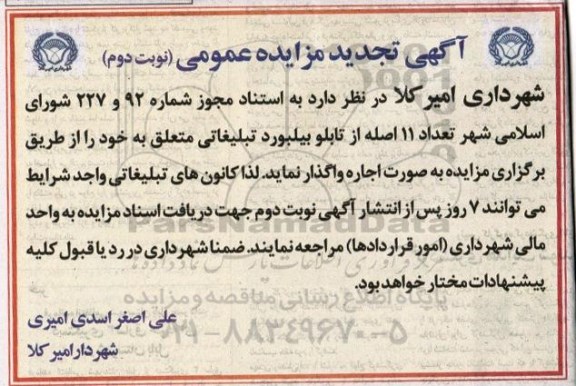 آگهی تجدید مزایده عمومی (نوبت دوم)
شهرداری امیرکلا در نظر دارد به استناد مجوز شماره ۹۲ و ۲۲۷ شورای
اسلامی شهر تعداد ۱۱ اصله از تابلو بیلبورد تبلیغاتی متعلق به خود را از طریق
برگزاری مزایده به صورت اجاره واگذار نماید. لذا کانون های تبلیغاتی واجد شرایط
می توانند ۷ روز پس از انتشار آگهی نوبت دوم جهت دریافت اسناد مزایده به واحد
مالی شهرداری (امور قراردادها) مراجعه نمایند. ضمنا شهرداری در رد یا قبول کلیه
پیشنهادات مختار خواهد بود.
علی اصغر اسدی امیری
شهردار امیرکلا
ParsNamadData
پایگاه اطلاع رسانی مناقصه و مزایده
۰۲۱-۸۸۳۴۹۶۷۰-۵